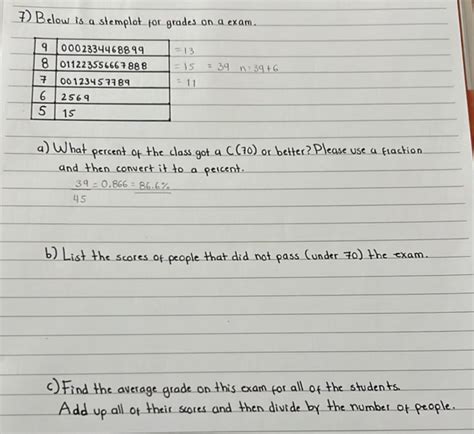 7) Below is a stemplot for grades on a exam.
9 0002334468899 = 13
8 011223556667888 = 15 = 39 n=39+6
7 00123457789 = 11
6 2569
5 15
a) What percent of the class got a C(70) or better? Please use a fraction
and then convert it to a percent.
39 = 0.866 = 86.6%
45
b) List the scores of people that did not pass (under 70) the exam.
c) Find the average grade on this exam for all of the students.
Add up all of their scores and then divide by the number of people.